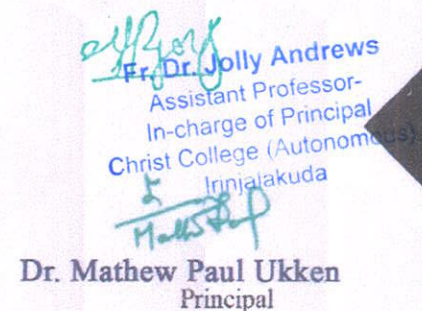 Fr. Dr. Jolly Andrews
Assistant Professor-
In-charge of Principal
Christ College (Autonomous)
Irinjalakuda
Dr. Mathew Paul Ukken
Principal